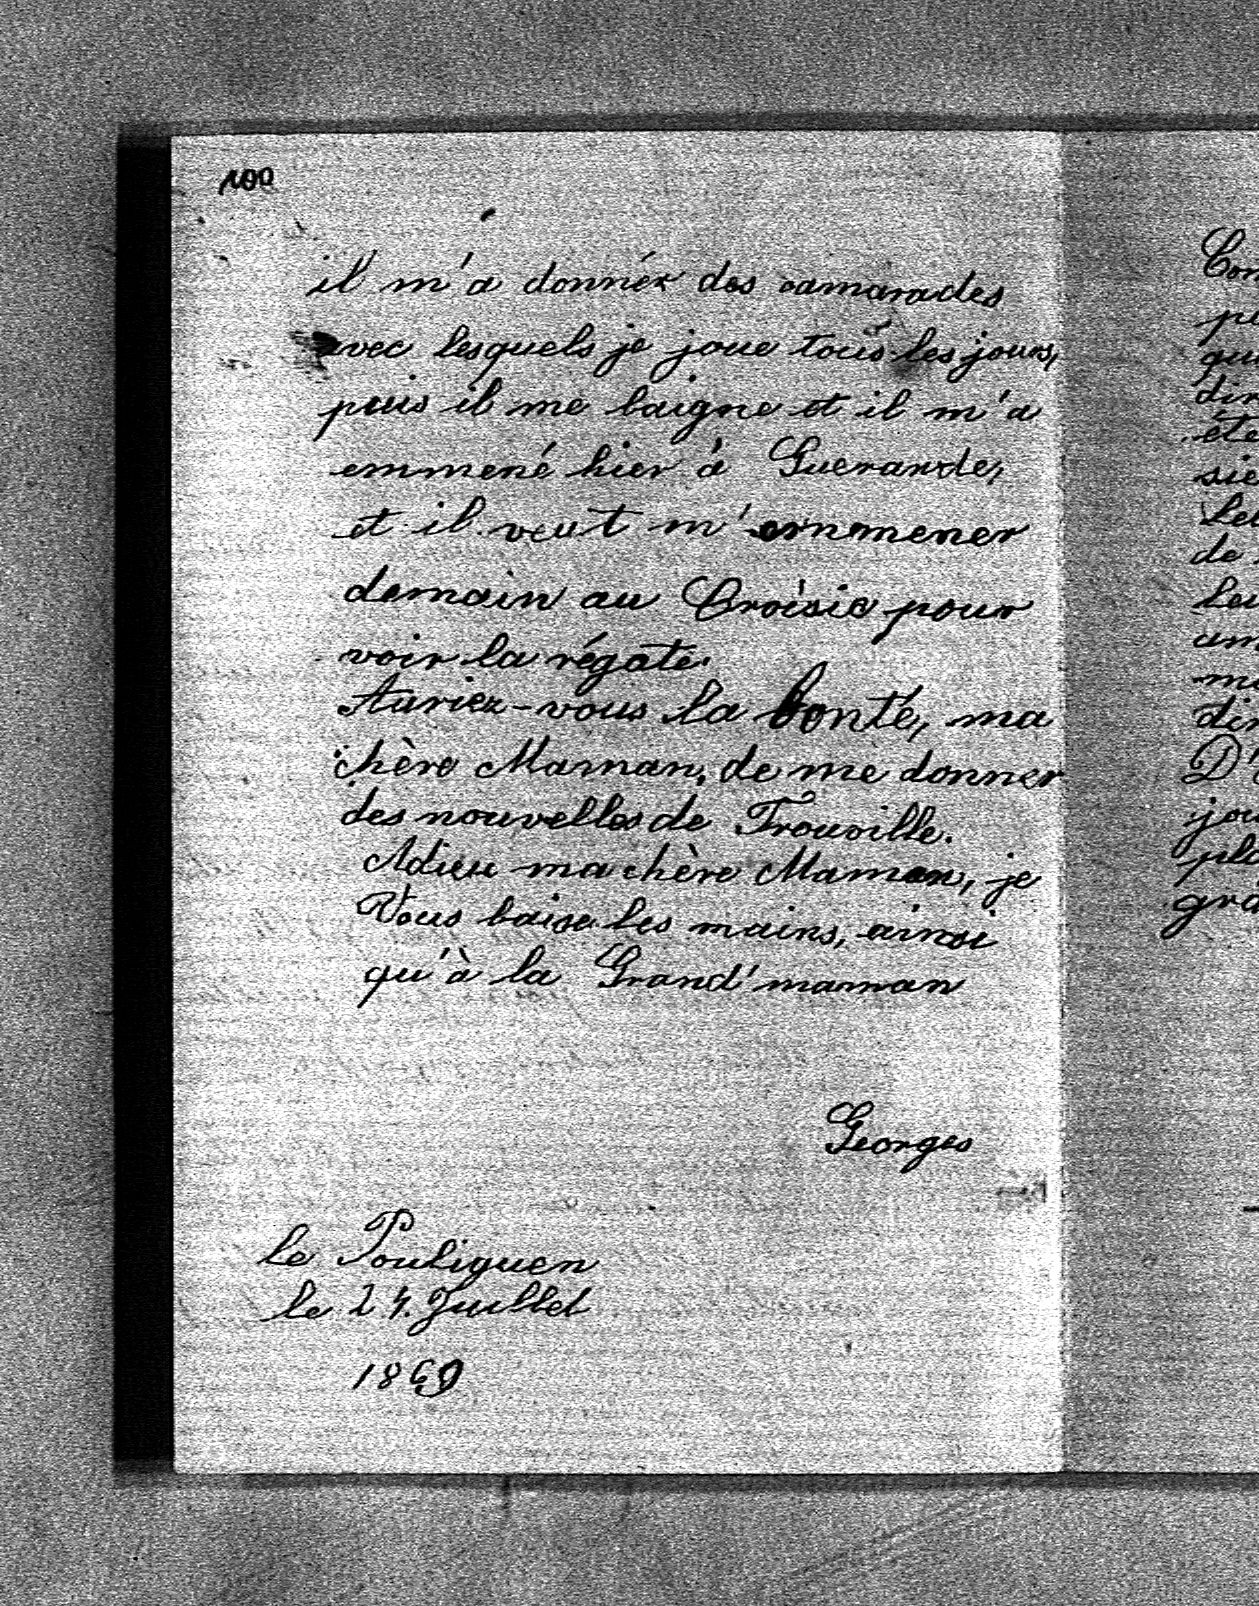 100
il m'a donnér des camarades
avec lesquels je joue tous les jours,
puis il me baigne et il m'a
emmené hier à Guerande,
et il veut m'emmener
demain au Croisic pour
voir la régate.
Auriez-vous la bonté, ma
chère Maman, de me donner
des nouvelles de Trouville.
Adieu ma chère Maman, je
Vous baise les mains, ainsi
qu'à la Grand'maman
Georges
le Pouliguen
le 24. Juillet
1869